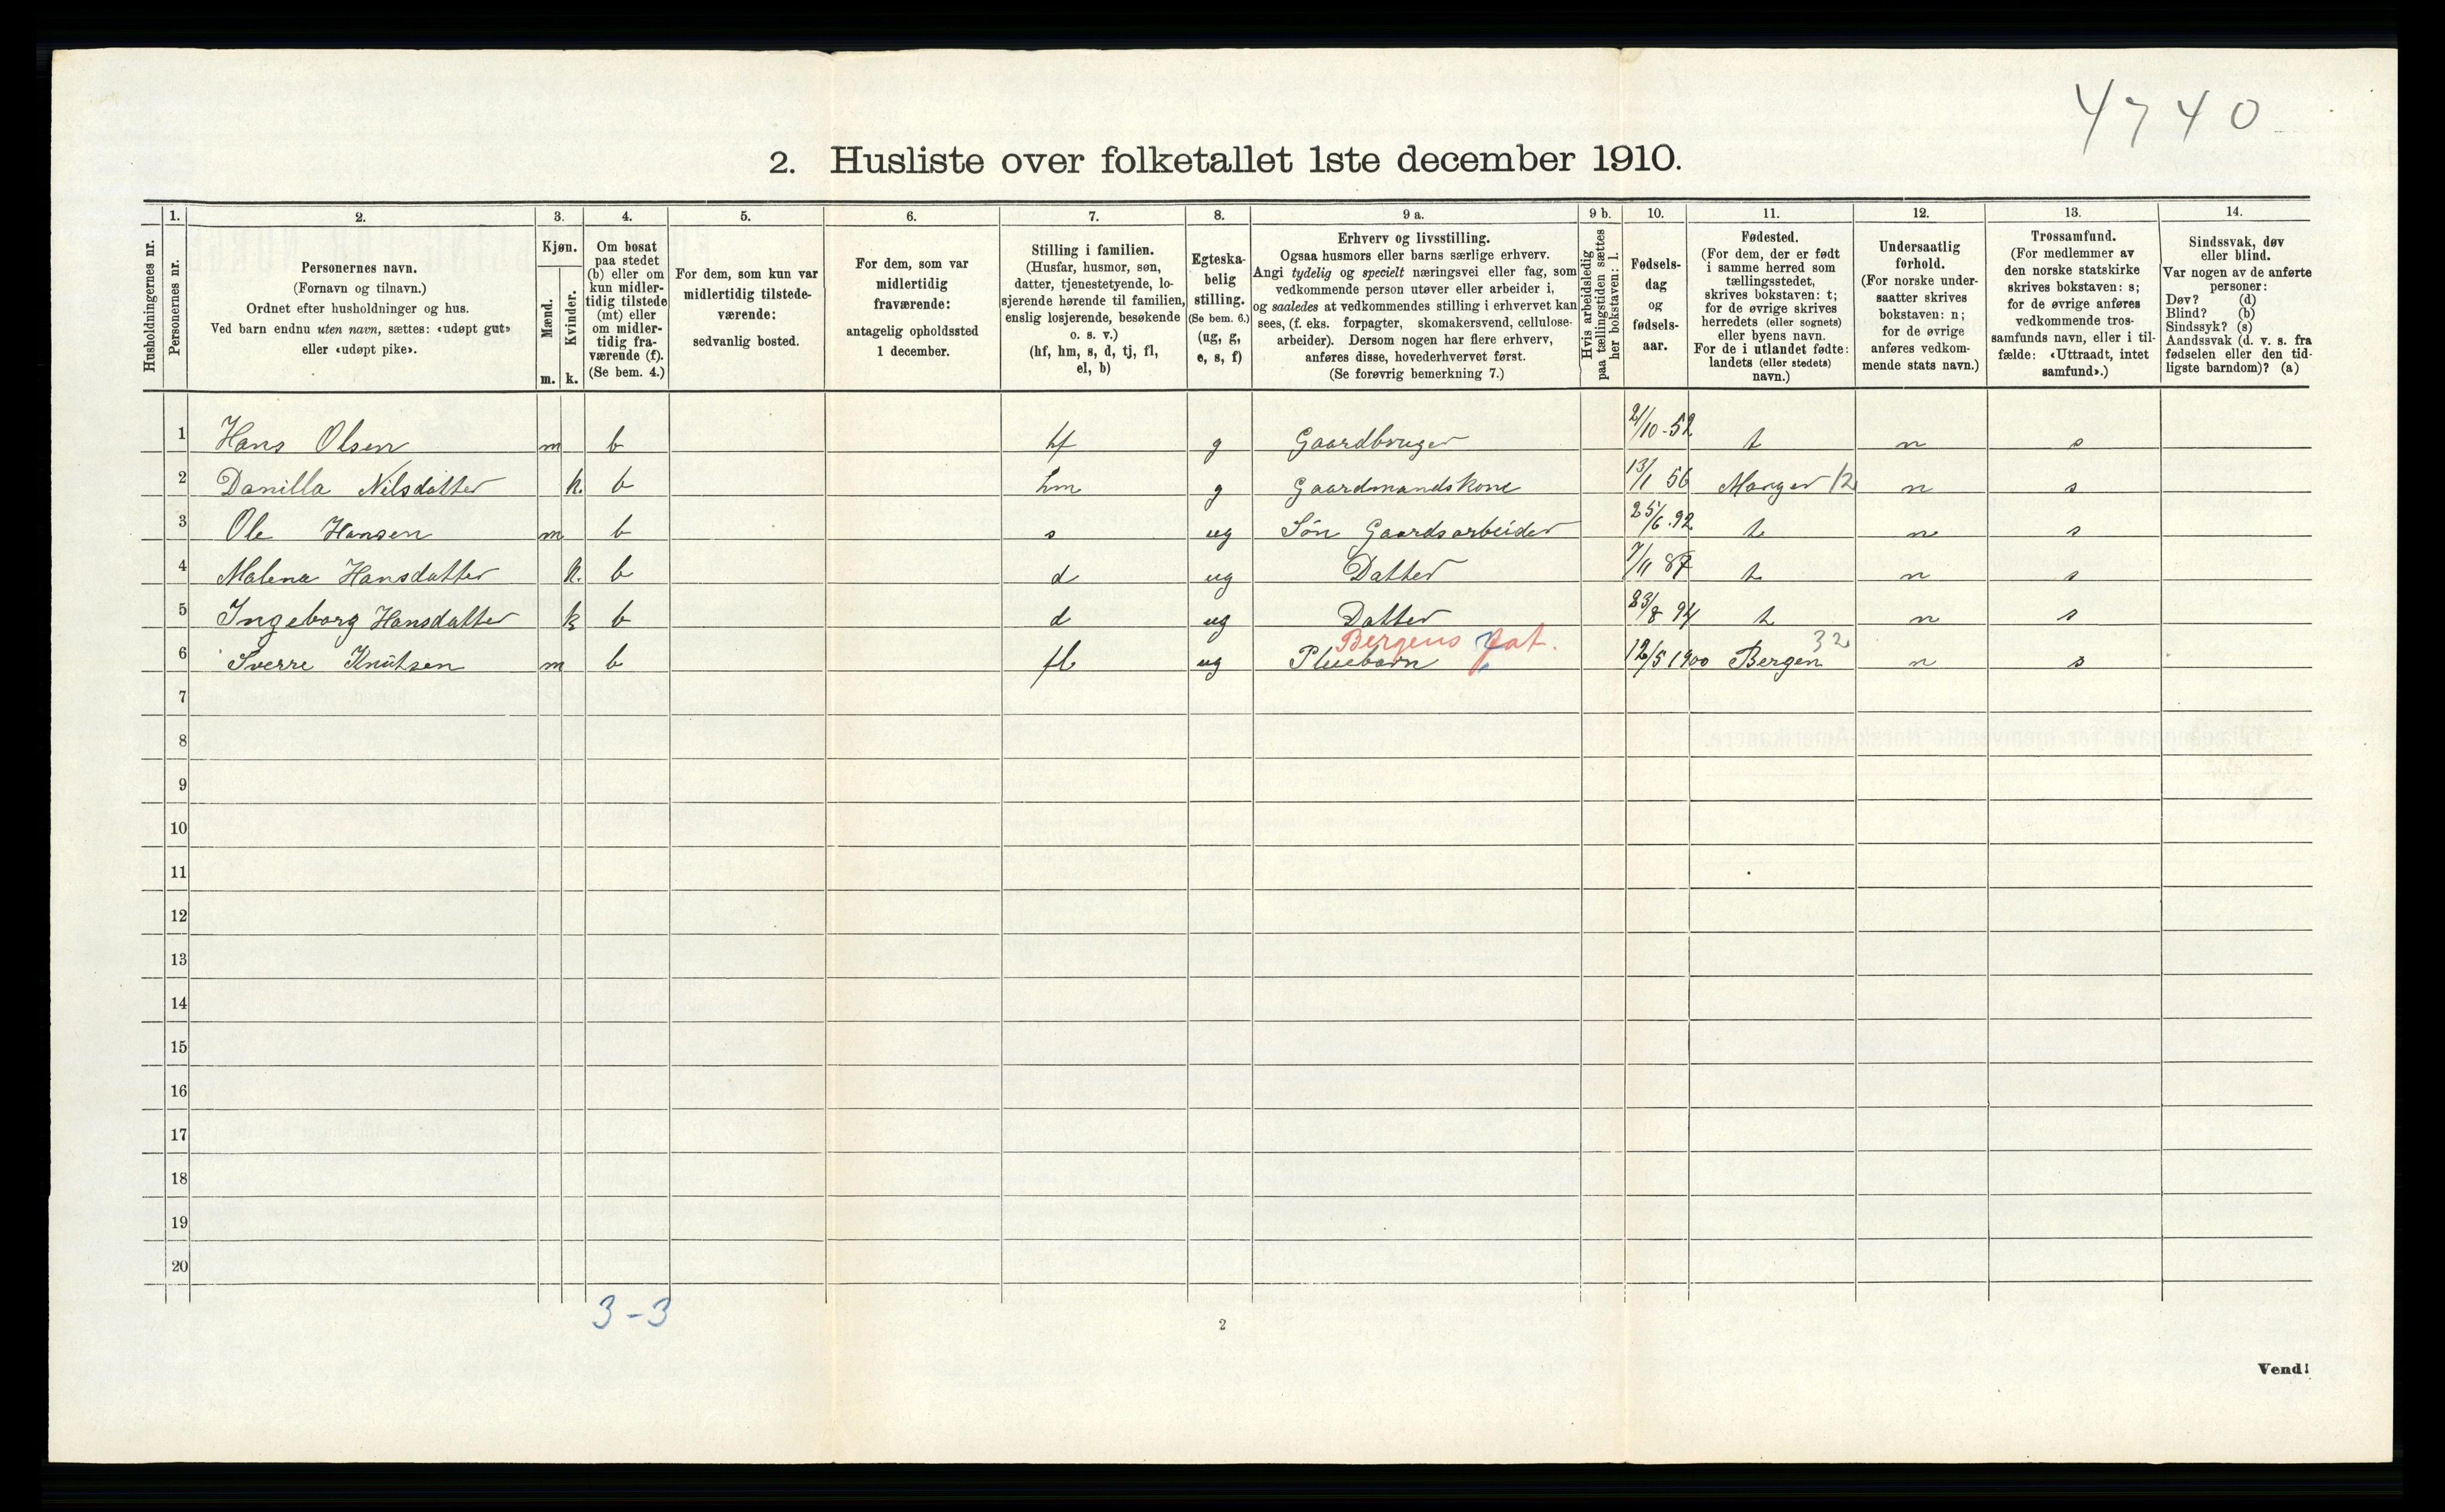 4740
2. Husliste over folketallet 1ste december 1910.
1. 2. 3. 4. 5. 6. 7. 8. 9 a. 9 b. 10. 11. 12. 13. 14.
Husholdningernes nr.
Personernes nr.
Personernes navn.
(Fornavn og tilnavn.)
Ordnet efter husholdninger og hus.
Ved barn endnu uten navn, sættes: «udøpt gut»
eller «udøpt pike».
Kjøn.
Mænd.
Kvinder.
m. k.
Om bosat
paa stedet
(b) eller om
kun midler-
tidig tilstede
(mt) eller
om midler-
tidig fra-
værende (f).
(Se bem. 4.)
For dem, som kun var
midlertidig tilstede-
værende:
sedvanlig bosted.
For dem, som var
midlertidig
fraværende:
antagelig opholdssted
1 december.
Stilling i familien.
(Husfar, husmor, søn,
datter, tjenestetyende, lo-
sjerende hørende til familien,
enslig losjerende, besøkende
o. s. v.)
(hf, hm, s, d, tj, fl,
el, b)
Egteska-
belig
stilling.
(Se bem. 6.)
(ug, g,
e, s, f)
Erhverv og livsstilling.
Ogsaa husmors eller barns særlige erhverv.
Angi tydelig og specielt næringsvei eller fag, som
vedkommende person utøver eller arbeider i,
og saaledes at vedkommendes stilling i erhvervet kan
sees, (f. eks. forpagter, skomakersvend, cellulose-
arbeider). Dersom nogen har flere erhverv,
anføres disse, hovederhvervet først.
(Se forøvrig bemerkning 7.)
Hvis arbeidsledig
paa tællingstiden sættes
her bokstaven: l.
Fødsels-
dag
og
fødsels-
aar.
Fødested.
(For dem, der er født
i samme herred som
tællingsstedet,
skrives bokstaven: t;
for de øvrige skrives
herredets (eller sognets)
eller byens navn.
For de i utlandet fødte:
landets (eller stedets)
navn.)
Undersaatlig
forhold.
(For norske under-
saatter skrives
bokstaven: n;
for de øvrige
anføres vedkom-
mende stats navn.)
Trossamfund.
(For medlemmer av
den norske statskirke
skrives bokstaven: s;
for de øvrige anføres
vedkommende tros-
samfunds navn, eller i til-
fælde: «Uttraadt, intet
samfund».)
Sindssvak, døv
eller blind.
Var nogen av de anførte
personer:
Døv? (d)
Blind? (b)
Sindssyk? (s)
Aandssvak (d. v. s. fra
fødselen eller den tid-
ligste barndom)? (a)
1 Hans Olsen m b hf g Gaardbruger 2/10-52 t n s
2 Danilla Nilsdatter k. b hm g Gaardmandskone 13/1 56 Manger 12 n s
3 Ole Hansen m b s ug Søn Gaardsarbeider 25/6.92 t n s
4 Malena Hansdatter k. b d ug Datter 7/11 87 t n s
5 Ingeborg Hansdatter k b d ug Datter 23/8 94 t n s
Bergens fat. 32
6 Sverre Knutsen m b fl ug Pleiebarn 12/5 1900 Bergen n s
7
8
9
10
11
12
13
14
15
16
17
18
19
20
3-3
2
Vend!